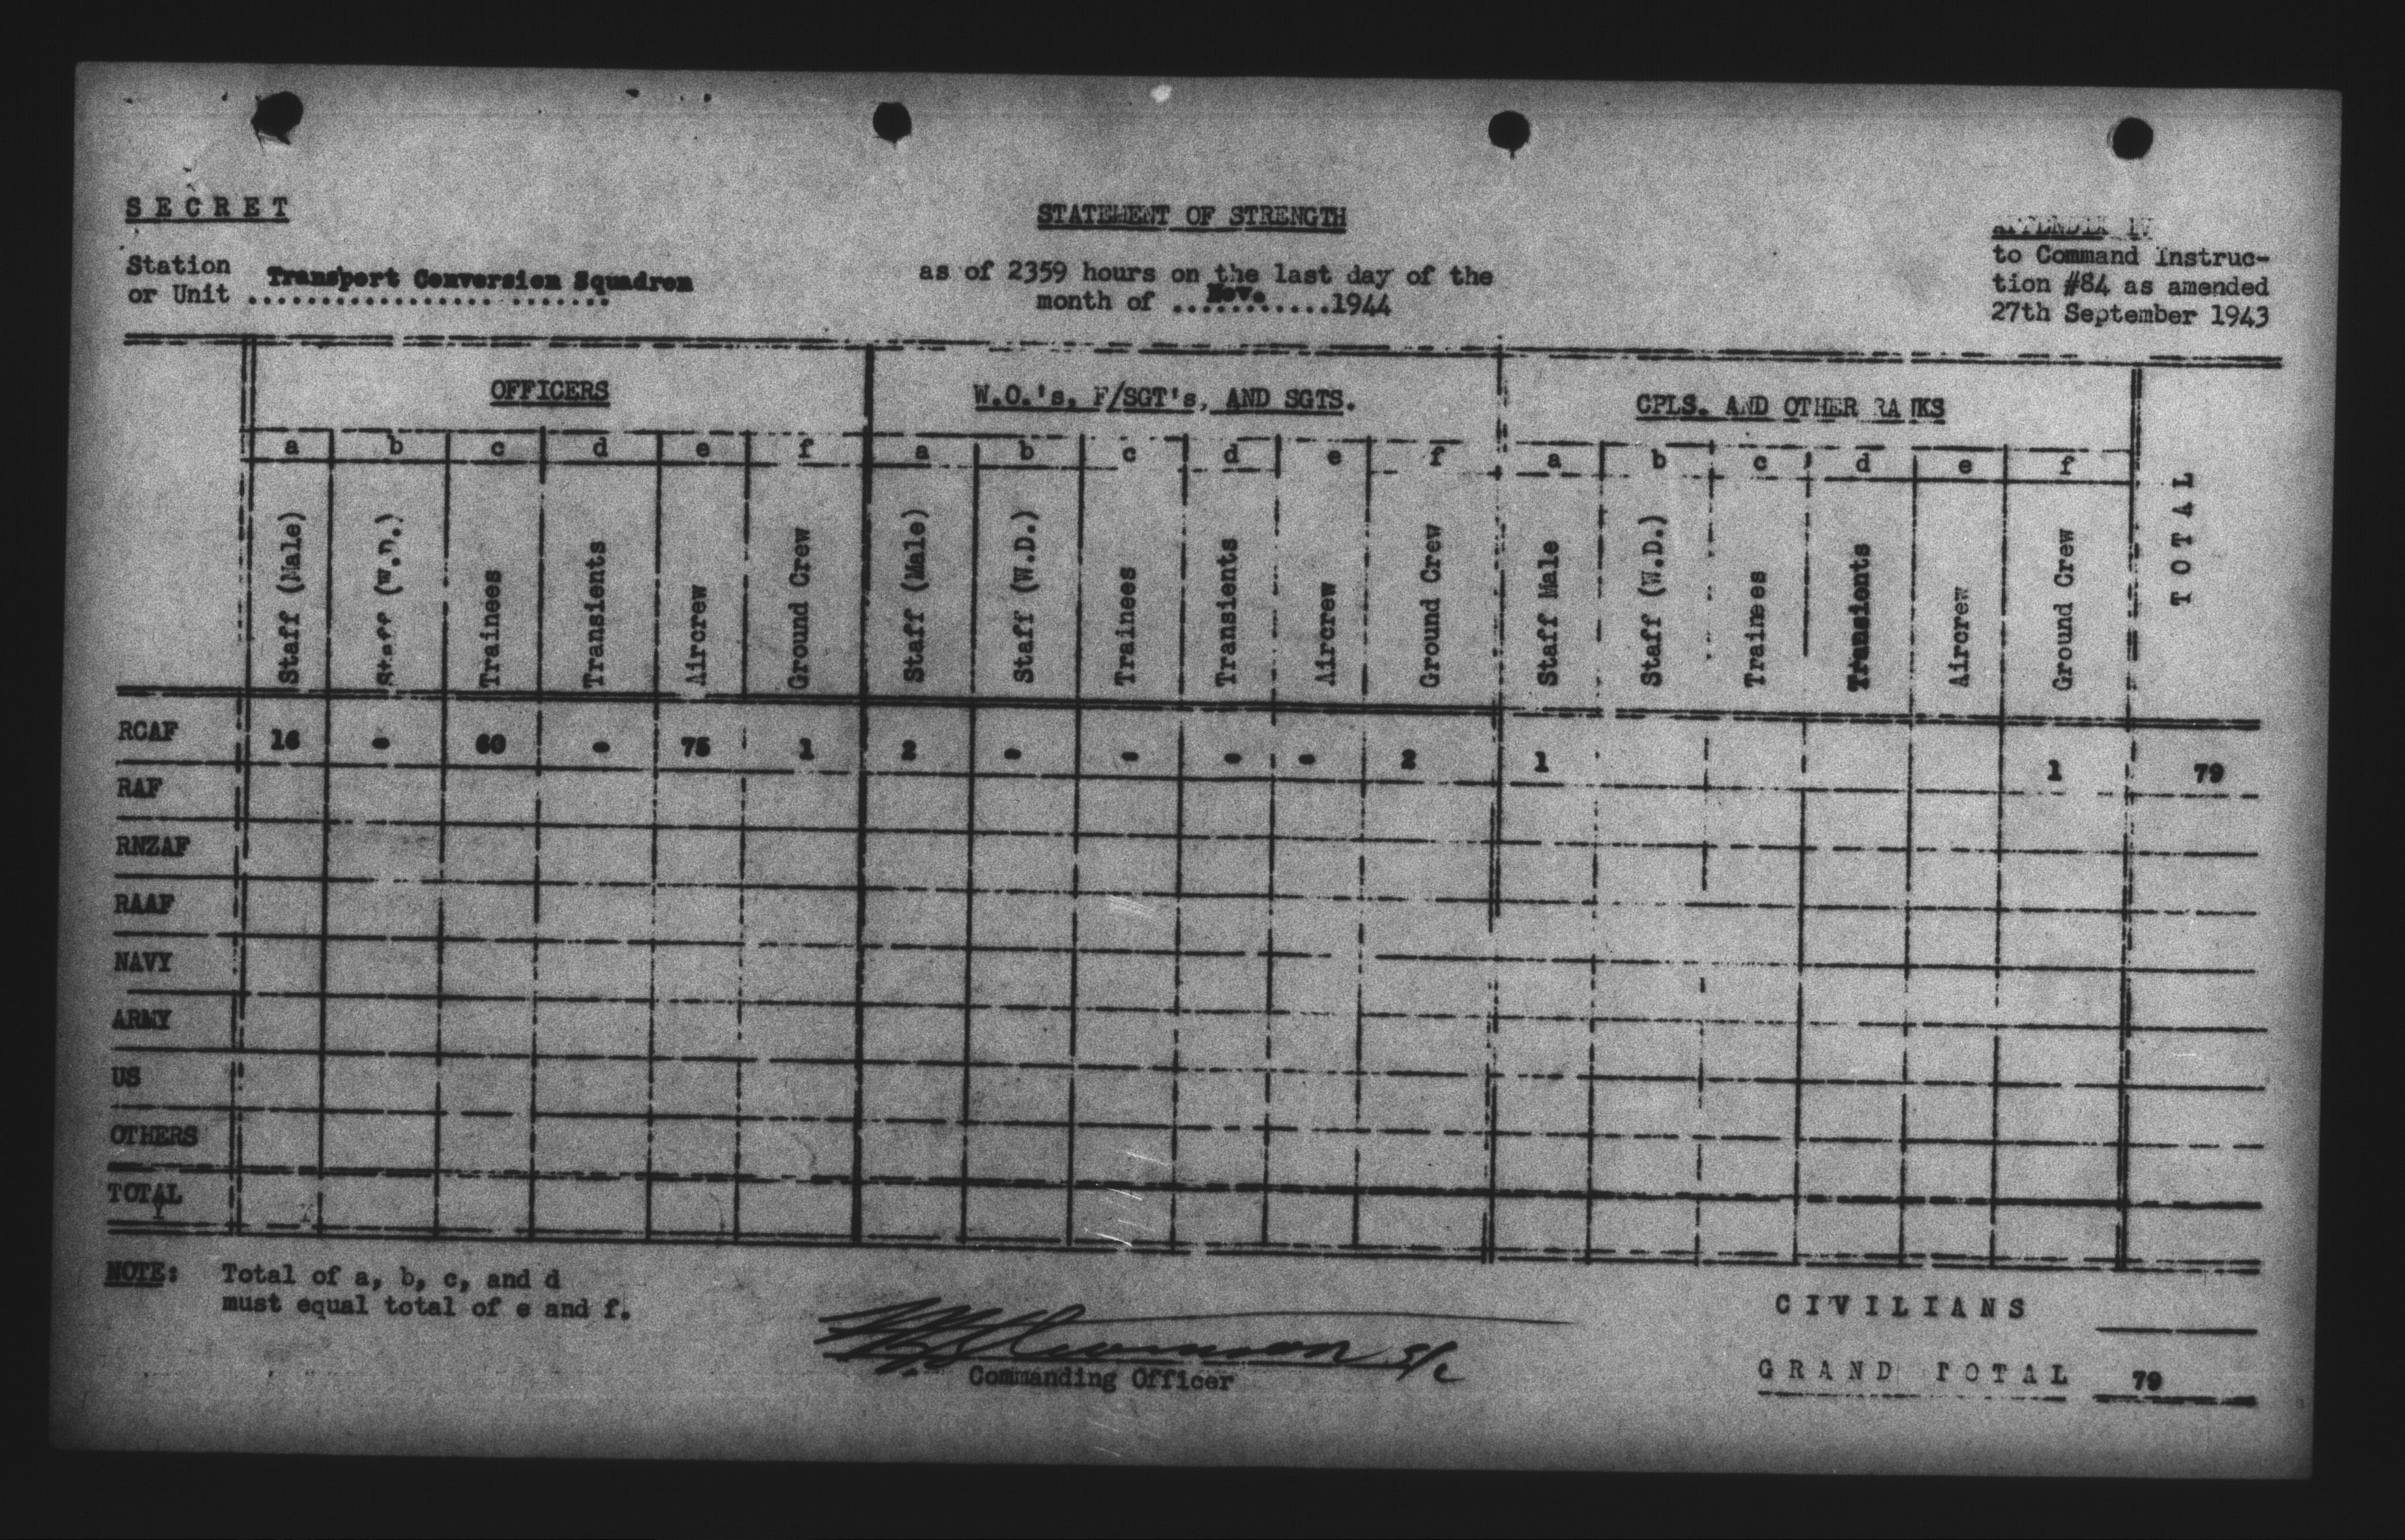 SECRET
STATEMENT OF STRENGTH
APPENDIX IV
to Command Instruc-
tion #84 as amended
27th September 1943
Station
or Unit Transport Conversion Squadron
as of 2359 hours on the last day of the
month of ...Nov.......1944
OFFICERS W.O.'s, F/SGT's, AND SGTS. CPLS. AND OTHER RANKS
a b c d e f a b c d e f a b c d e f
Staff (Male) Staff (W.D.) Trainees Transients Aircrew Ground Crew Staff (Male) Staff (W.D.) Trainees Transients Aircrew Ground Crew Staff Male Staff (W.D.) Trainees Transients Aircrew Ground Crew TOTAL
RCAF 16 - 60 - 75 1 2 - - - - 2 1 1 79
RAF
RNZAF
RAAF
NAVY
ARMY
US
OTHERS
TOTAL
NOTE: Total of a, b, c, and d
must equal total of e and f.
Commanding Officer
CIVILIANS
GRAND TOTAL 79